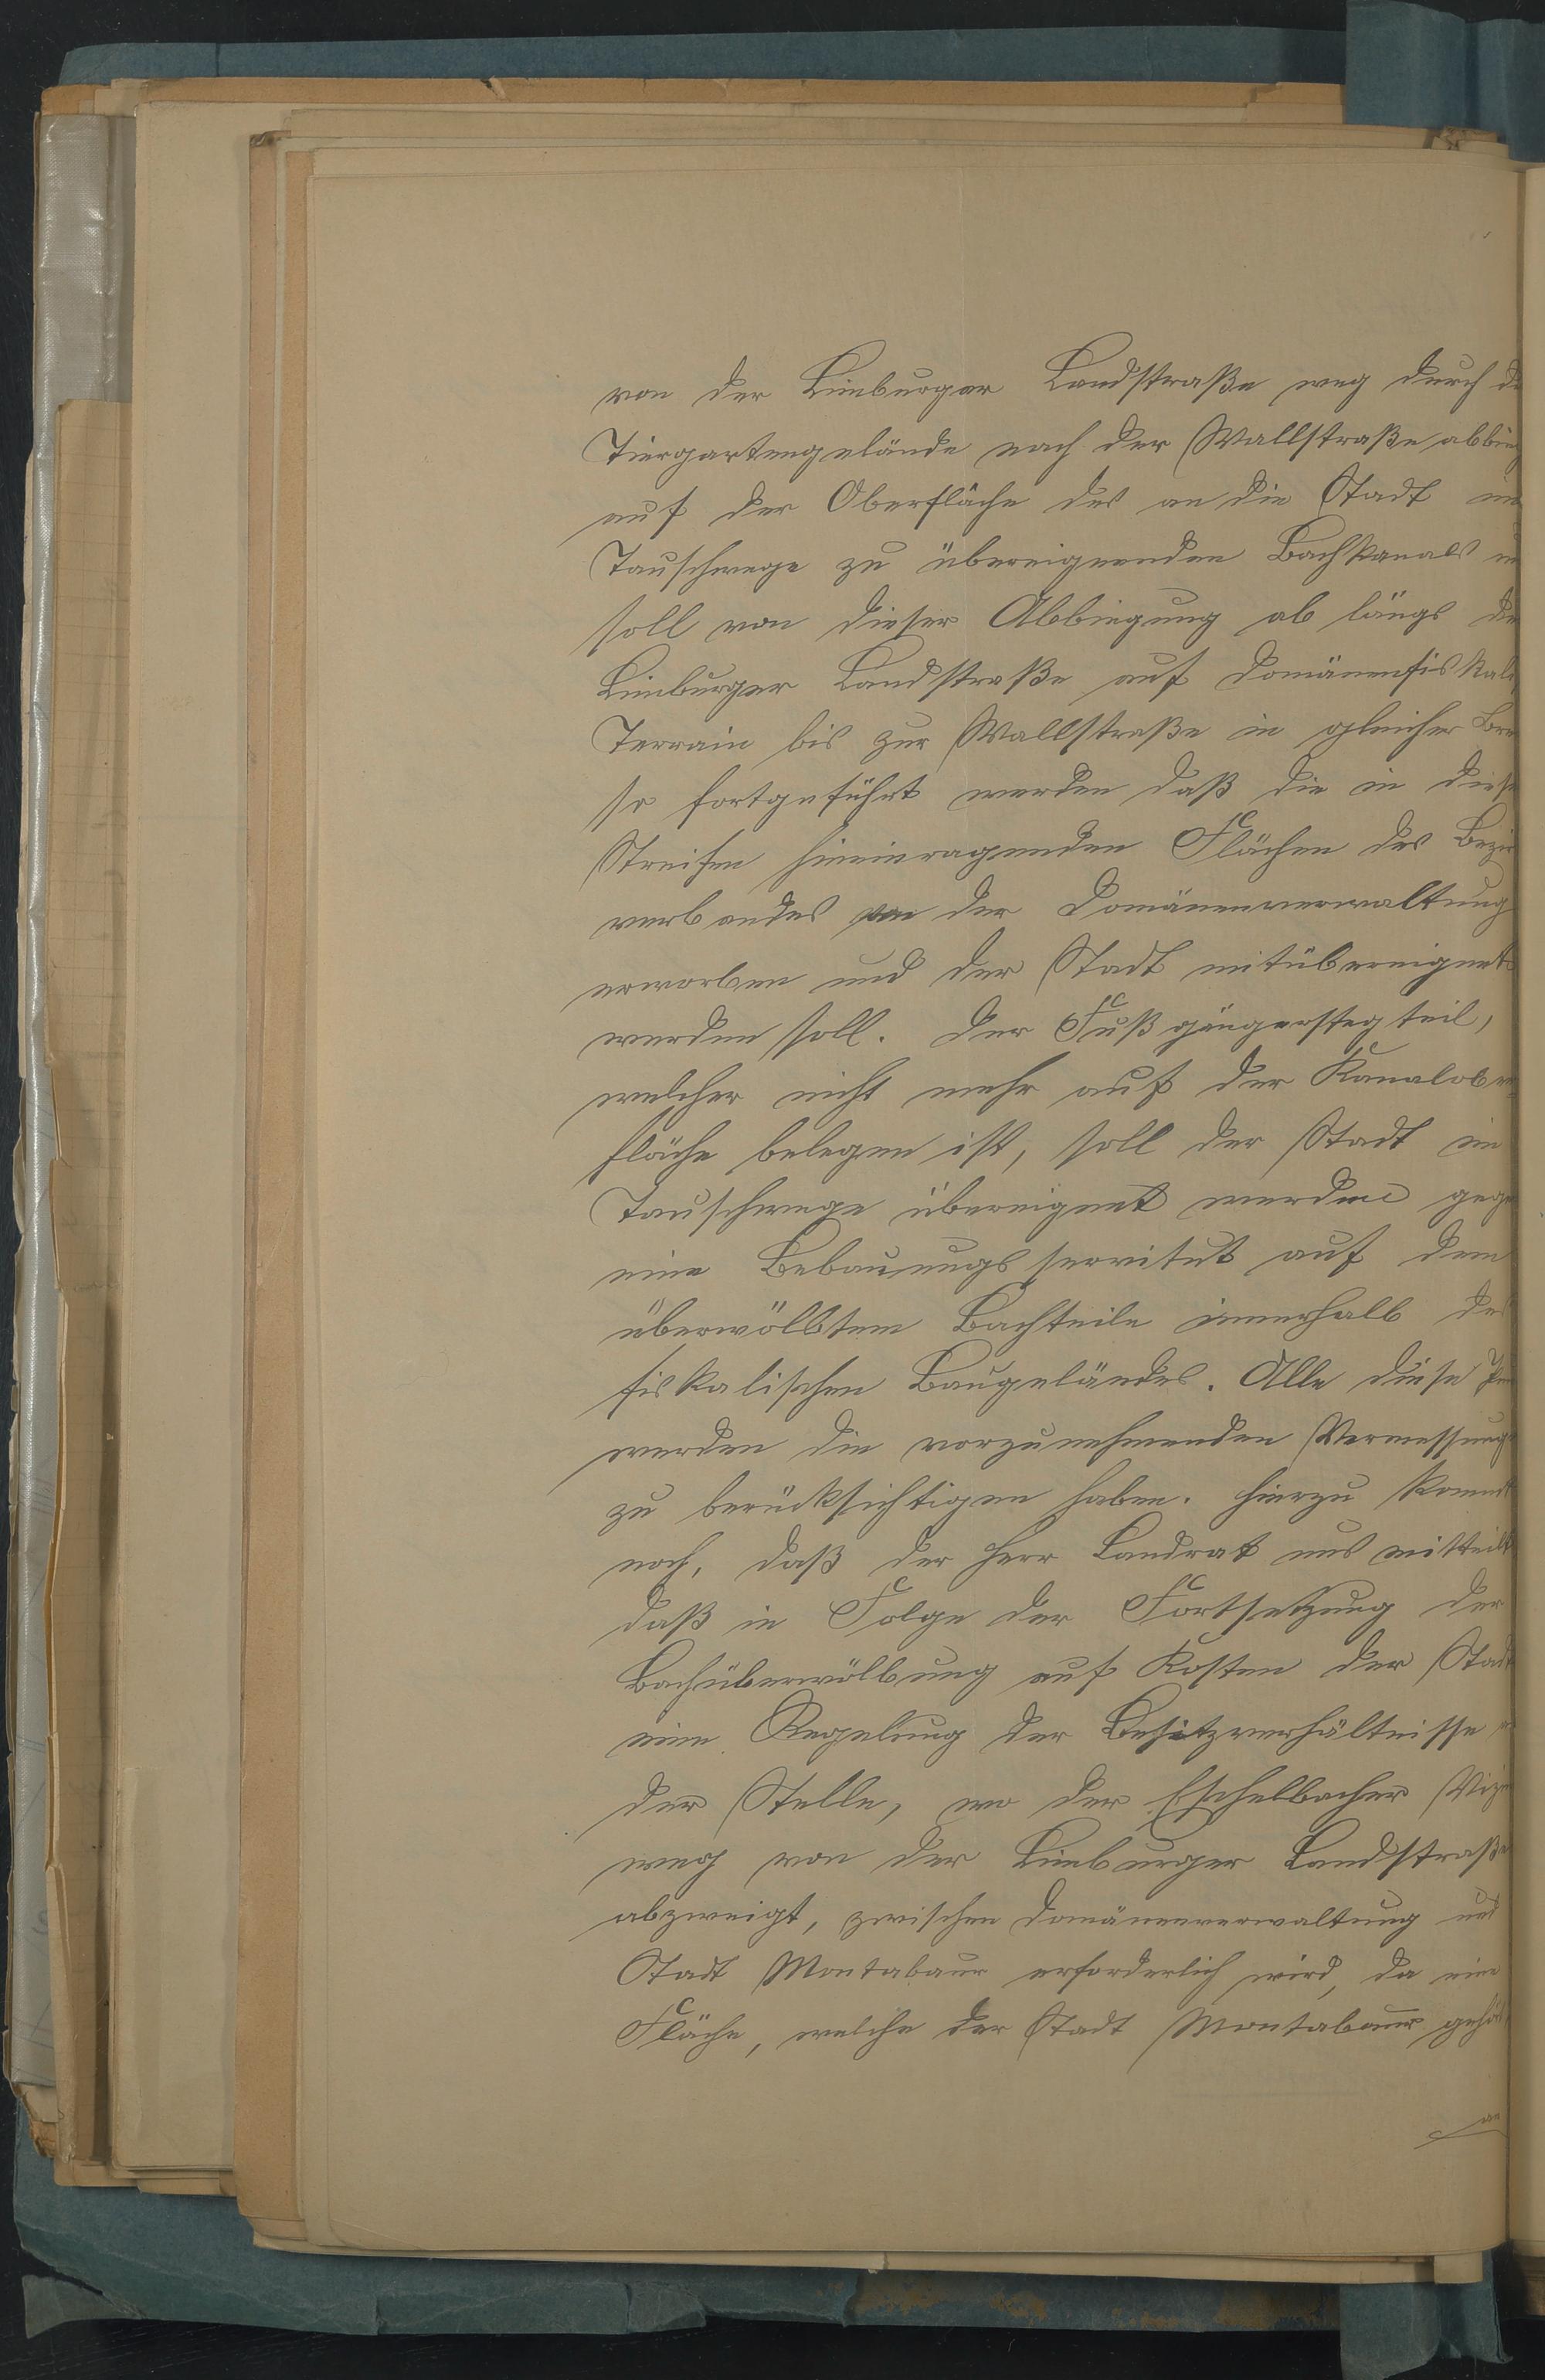 von der Limburger Landstraße weg durch d
Tiergartengelände nach der Wallstraße abbieg
auf der Oberfläche des an die Stadt im
Tauschwege zu übereignenden Bachkanals
soll von dieser Abbiegung ab längs de
Limburger Landstraße auf domänenfiskali
Terrain bis zur Wallstraße in gleicher Bre
so fortgeführt werden daß die in diese
Streifen hineinragenden Flächen des Bezir
verbandes von der Domänenverwaltung
erworben und der Stadt mitübereignet
werden soll. Der Fußgängerstegteil,
welcher nicht mehr auf der Kanalober
fläche belegen ist, soll der Stadt im
Tauschwege übereignet werden gege
eine Bebauungsservitut auf dem
überwölbtem Bachteile innerhalb des
fiskalischen Baugeländes. Alle diese
werden die vorzunehmenden Vermessung
zu berücksichtigen haben. Hierzu kommt
noch, daß der Herr Landrat uns mitteilt
daß in Folge der Fortsetzung der
Bachüberwölbung auf Kosten der Stadt
eine Regelung der Besitzverhältnisse
der Stelle, wo der Eschelbacher Vizi
weg von der Limburger Landstraße
abzweigt, zwischen Domänenverwaltung und
Stadt Montabaur erforderlich wird, da eine
Fläche, welche der Stadt Montabaur gehör
an